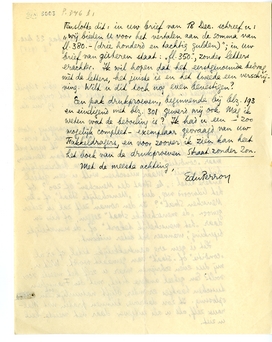 P. 046 A 1
Tenslotte dit: in uw brief van 18 Dec. schreef u:
"wij bieden u voor het vertalen aan de somma van
fl. 380.- (drie honderd en tachtig gulden)"; in uw
brief van gisteren staat: "fl. 350", zonder letters
erachter. Ik wil hopen dat het eerstgenoemde bedrag
met de letters, het juiste is en het tweede een verschrij-
ving. Wilt u dit toch nog even bevestigen?
Een pak drukproeven, beginnende bij blz. 193
en eindigend met blz. 301 geworden mij ook. Mag ik
weten wat de bedoeling is? Ik had u een - zoo
mogelijk compleet - exemplaar gevraagd van uw
Fakkeldragers, en voor zoover ik zien kan is het
het boek van de drukproeven Straat zonder Zon.
Met de meeste achting,
EduPerron